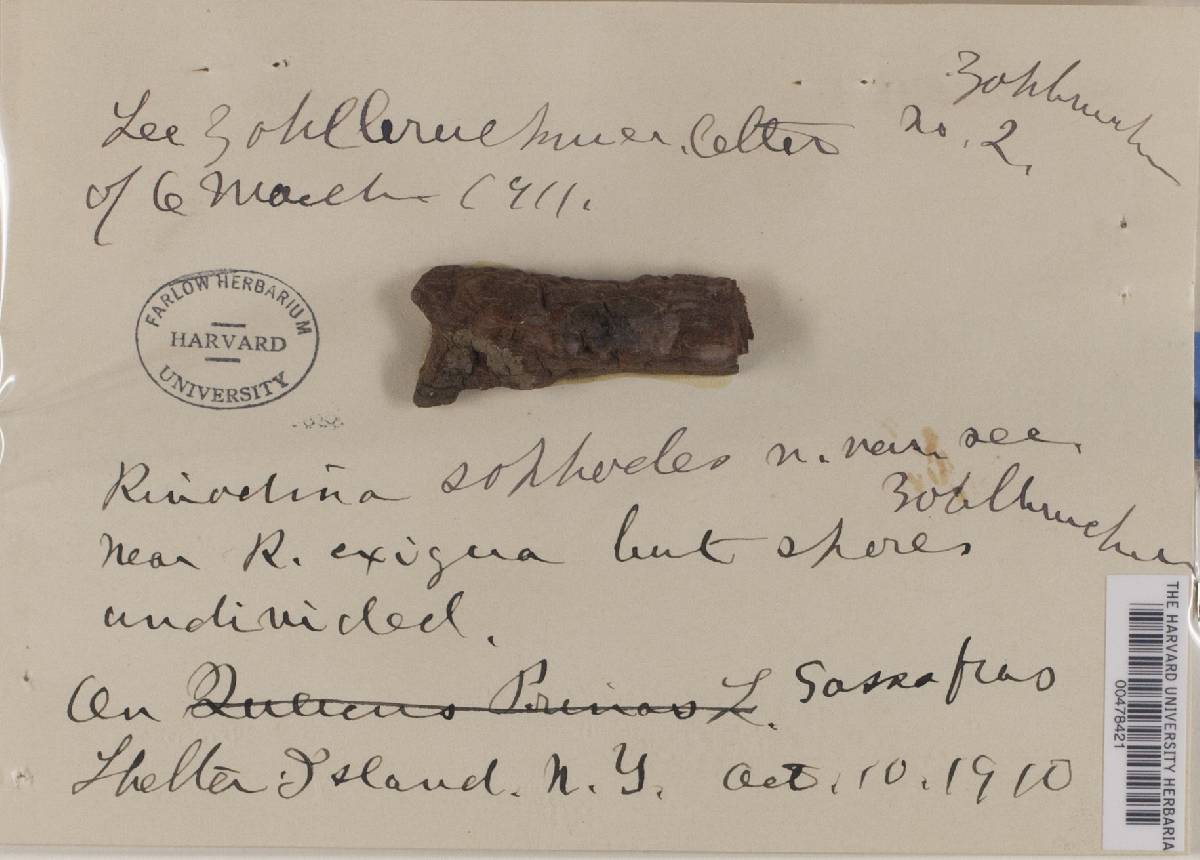 See Zahlbruckner letter no. 2. Zahlbruckn
of 6 March 1911.
FARLOW HERBARIUM
HARVARD
UNIVERSITY
Rinodina sophodes n. var. see
Zahlbruckner
near R. exigua but spores
undivided.
On Quercus Prinus L. Sassafras
Shelter Island. N. Y. Oct. 10. 1910
THE HARVARD UNIVERSITY HERBARIA
00478421